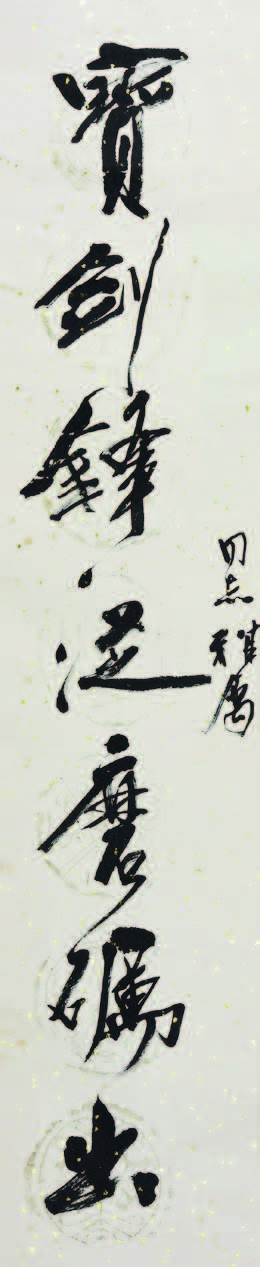 同志雅属
寶劍鋒從磨礪出